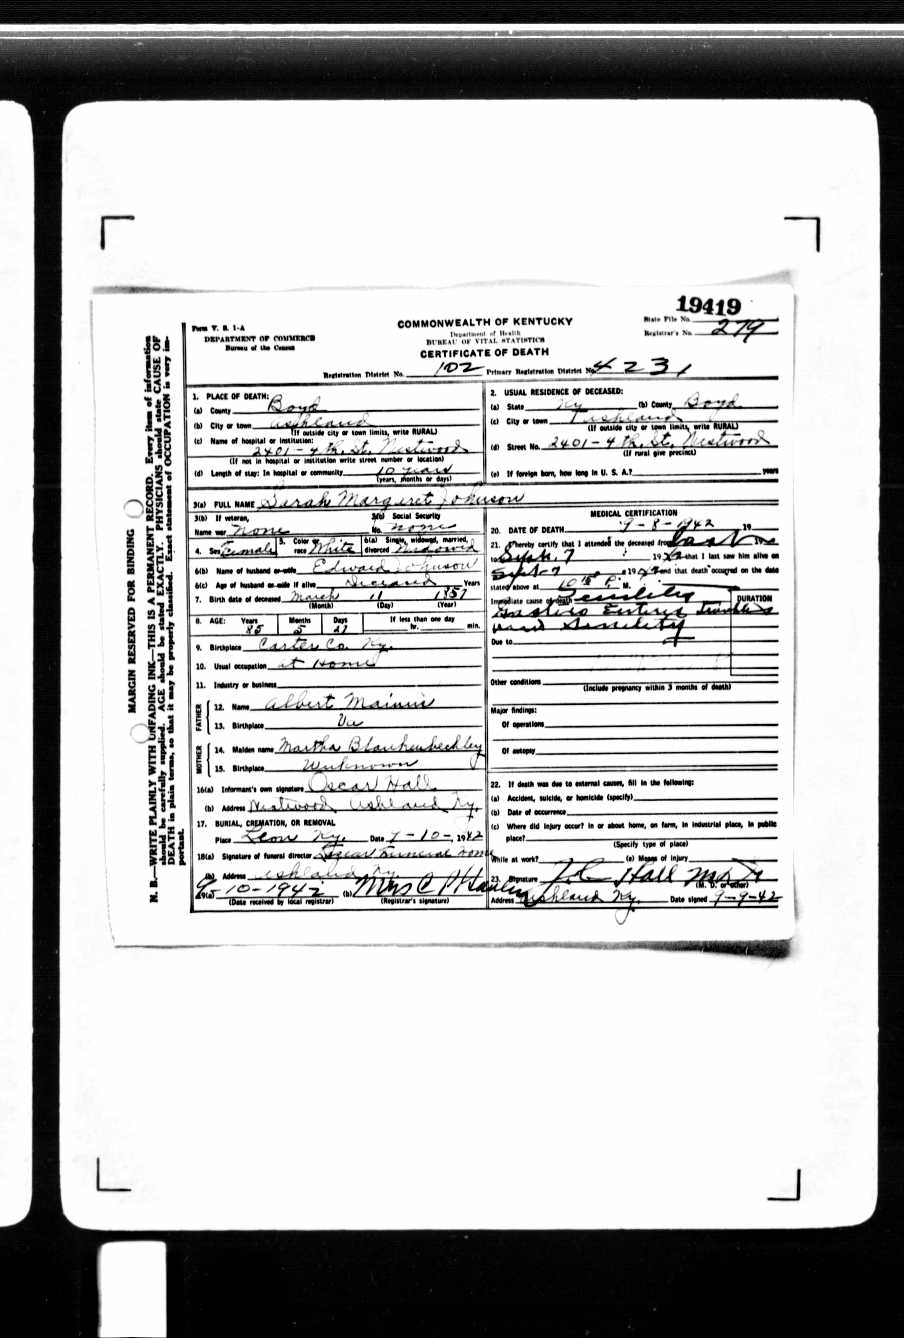 19419
Form V. S. 1-A
DEPARTMENT OF COMMERCE
Bureau of the Census
COMMONWEALTH OF KENTUCKY
Department of Health
BUREAU OF VITAL STATISTICS
CERTIFICATE OF DEATH
State File No.
Registrar's No. 279
Registration District No. 102 Primary Registration District No. 4231
MARGIN RESERVED FOR BINDING
N. B.—WRITE PLAINLY WITH UNFADING INK—THIS IS A PERMANENT RECORD. Every item of information
should be carefully supplied. AGE should be stated EXACTLY. PHYSICIANS should state CAUSE OF
DEATH in plain terms, so that it may be properly classified. Exact statement of OCCUPATION is very im-
portant.
1. PLACE OF DEATH:
(a) County Boyd
(b) City or town Ashland
(If outside city or town limits, write RURAL)
(c) Name of hospital or institution:
2401-4th. St. Westwood
(If not in hospital or institution write street number or location)
(d) Length of stay: In hospital or community 10 years
(years, months or days)
2. USUAL RESIDENCE OF DECEASED:
(a) State Ky (b) County Boyd
(c) City or town Ashland
(If outside city or town limits, write RURAL)
(d) Street No. 2401-4th. St. Westwood
(If rural give precinct)
(e) If foreign born, how long in U. S. A.? years
3(a) FULL NAME Sarah Margaret Johnson
3(b) If veteran,
Name war None
3(c) Social Security
No. none
4. Sex Female 5. Color or race White 6(a) Single, widowed, married, divorced Widowed
6(b) Name of husband or wife Edward Johnson
6(c) Age of husband or wife if alive Deceased Years
7. Birth date of deceased March 11 1857
(Month) (Day) (Year)
8. AGE: Years Months Days If less than one day
85 5 27 hr. min.
9. Birthplace Carter Co. Ky.
10. Usual occupation at Home
11. Industry or business
FATHER
12. Name Albert
13. Birthplace Va
MOTHER
14. Maiden name Martha
15. Birthplace Unknown
16(a) Informant's own signature Oscar Hall
(b) Address Westwood, Ashland Ky.
17. BURIAL, CREMATION, OR REMOVAL
Place Leon Ky. Date 9-10-1942
18(a) Signature of funeral director Funeral Home
(b) Address Ashland Ky.
19(a) 9-10-1942 (b) Mrs C
(Date received by local registrar) (Registrar's signature)
MEDICAL CERTIFICATION
20. DATE OF DEATH 9-8-1942 19
21. I hereby certify that I attended the deceased from last
to Sept. 7 1942 that I last saw him alive on
Sept 7 1942 and that death occurred on the date
stated above at 10 P. M.
Immediate cause of death Senility
DURATION
and Senility
Due to
Other conditions
(Include pregnancy within 3 months of death)
Major findings:
Of operations
Of autopsy
22. If death was due to external causes, fill in the following:
(a) Accident, suicide, or homicide (specify)
(b) Date of occurrence
(c) Where did injury occur? in or about home, on farm, in industrial place, in public
place?
(Specify type of place)
While at work? (e) Means of injury
23. Signature Hall
(M. D. or other)
Address Ashland Ky. Date signed 9-9-42